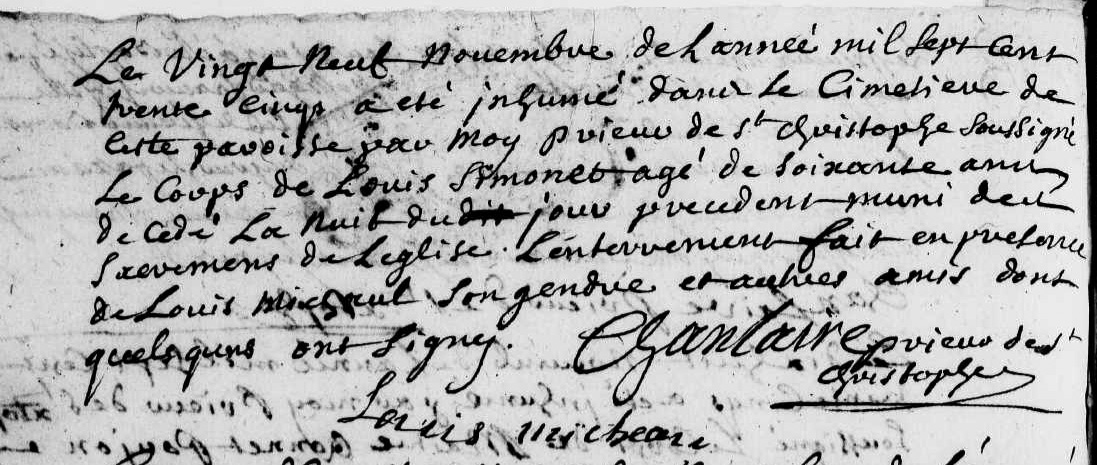 Le Vingt Neuf Novembre de Lanneé mil sept Cent
trente Cinqs a eté inhumé dans Le Cimetiere de
Cette paroisse par moy prieur de St Christophe soussigné
Le Corps de Louis Simonet agé de soixante ans
decedé La Nuit du jour precedent muni des
Sacremens de Leglise. Lenterrement fait en presence
de Louis son gendre et autres amis dont
quelsquns ont signy. Chantaire prieur de St
Christophe
Louis micheau